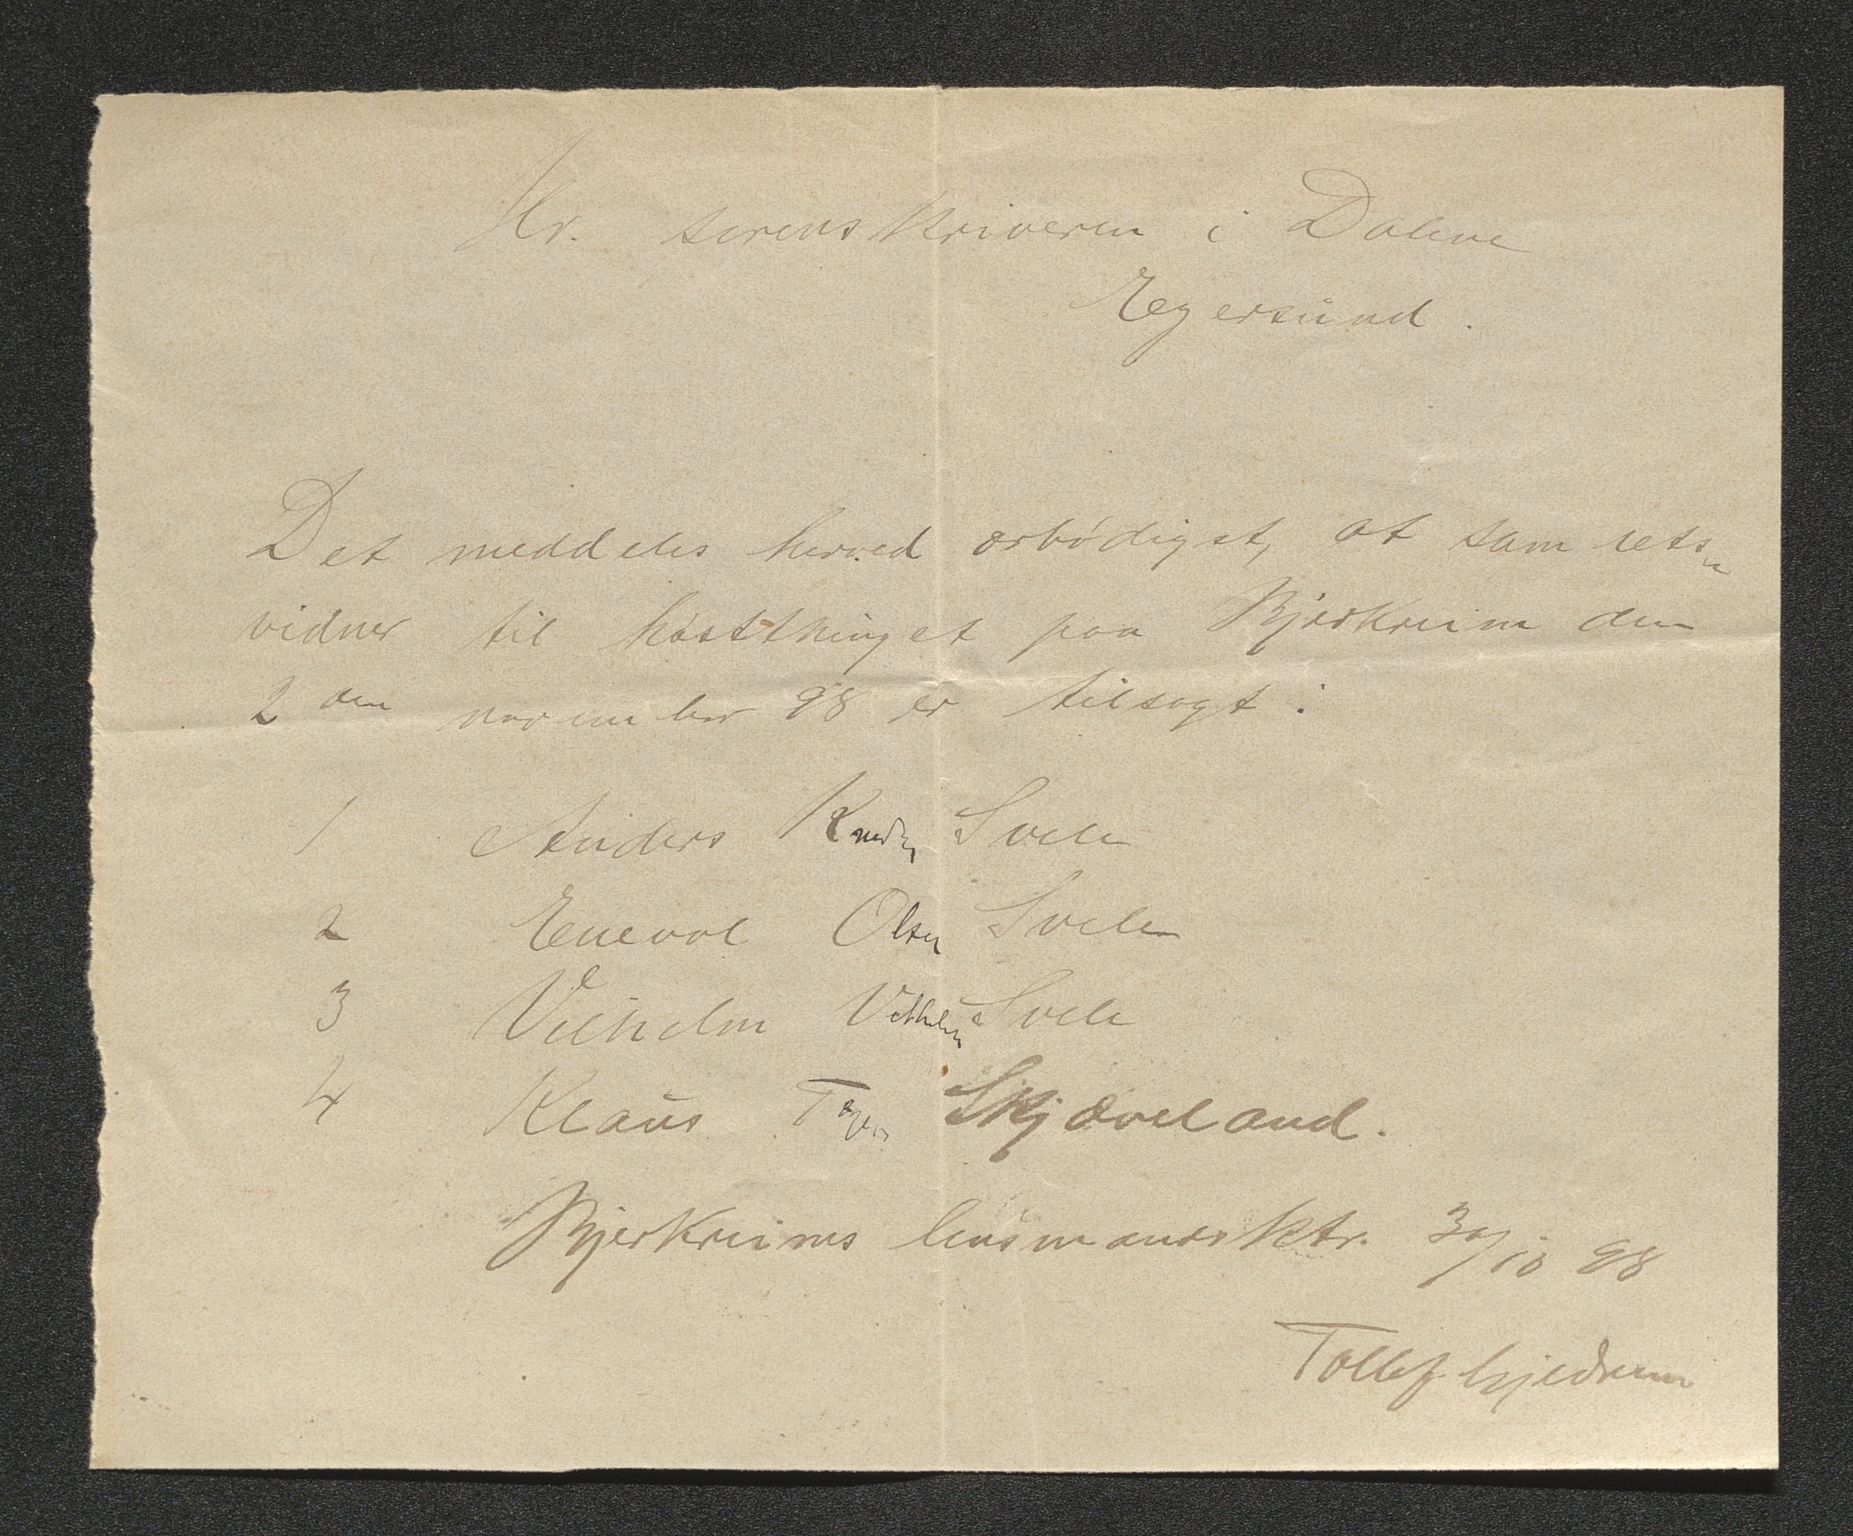 Hr. sorenskriveren i Dalene
Egersund.
Det meddeles herved ærbødigst, at som rets-
vidner til høsttinget paa Bjerkreim den
2den november 98 er tilsagt:
1 Anders Knudsen Svele
2 Enevol Olsen Svele
3 Vilhelm Svele
4 Klaus Skjæveland.
Bjerkreims lensmandsktr. 30/10 98
Tollef